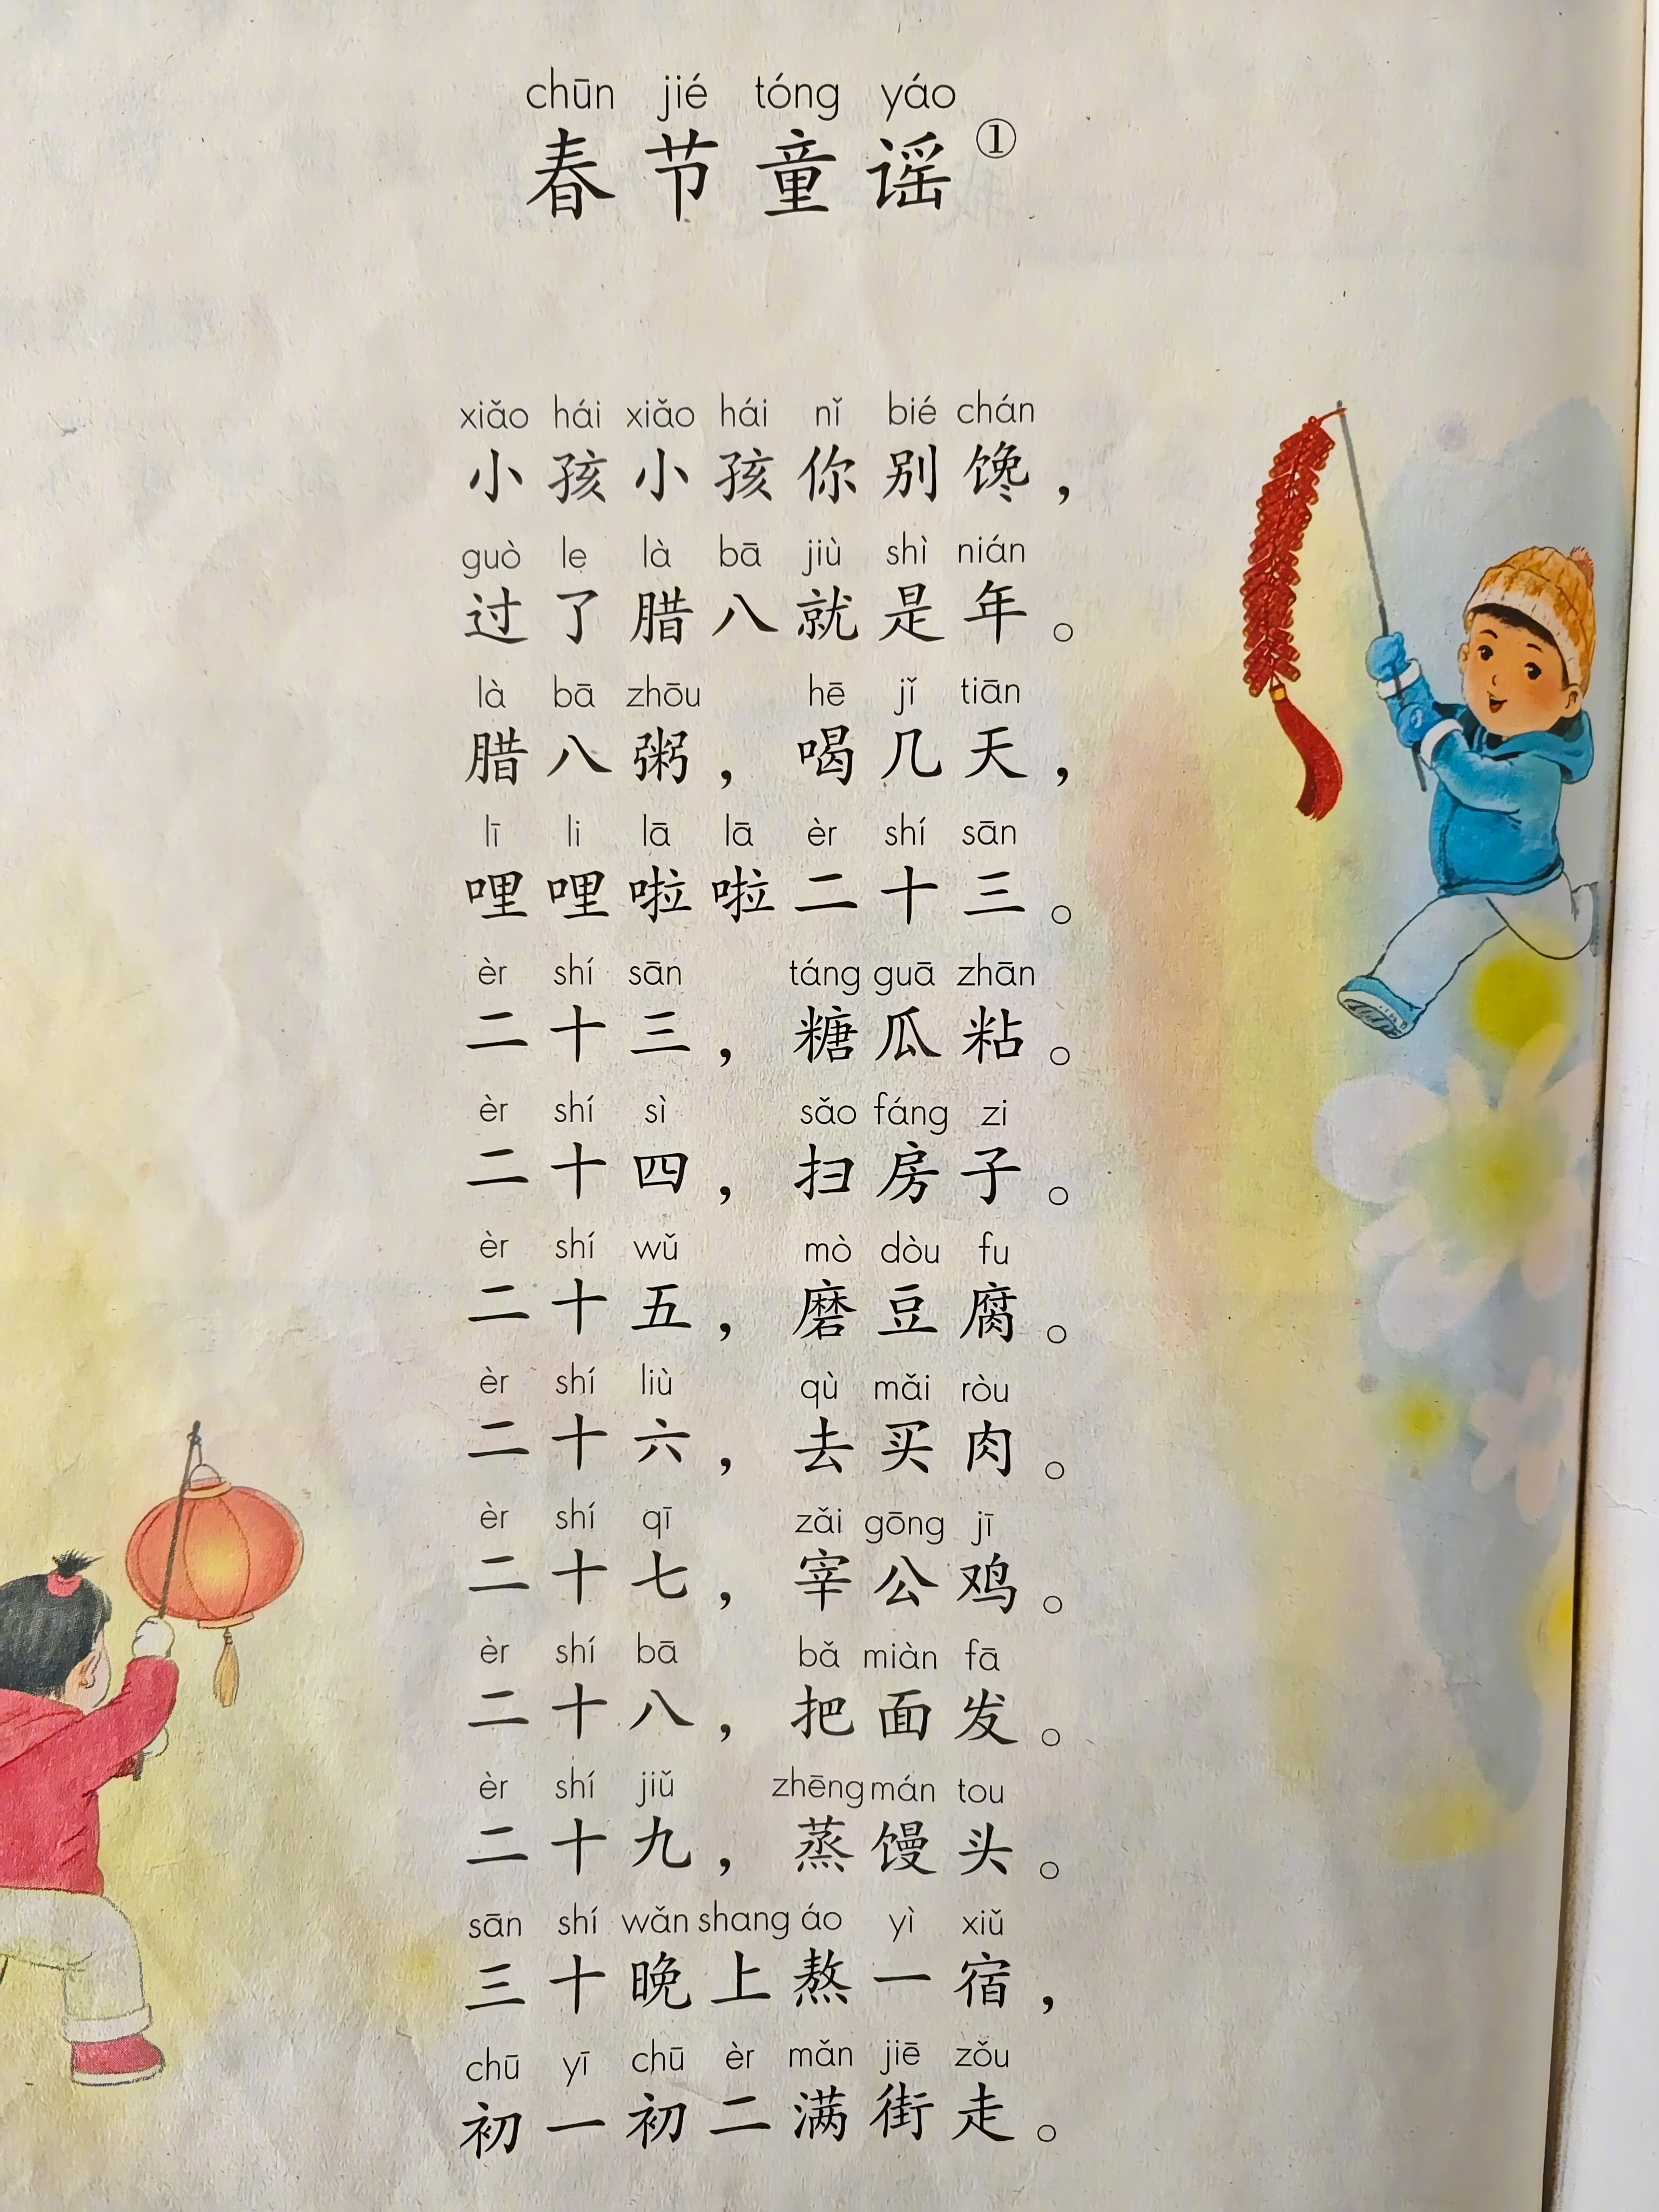 chūn jié tóng yáo
春节童谣①
xiǎo hái xiǎo hái nǐ bié chán
小孩小孩你别馋，
guò le là bā jiù shì nián
过了腊八就是年。
là bā zhōu hē jǐ tiān
腊八粥，喝几天，
lī li lā lā èr shí sān
哩哩啦啦二十三。
èr shí sān táng guā zhān
二十三，糖瓜粘。
èr shí sì sǎo fáng zi
二十四，扫房子。
èr shí wǔ mò dòu fu
二十五，磨豆腐。
èr shí liù qù mǎi ròu
二十六，去买肉。
èr shí qī zǎi gōng jī
二十七，宰公鸡。
èr shí bā bǎ miàn fā
二十八，把面发。
èr shí jiǔ zhēng mán tou
二十九，蒸馒头。
sān shí wǎn shang áo yì xiǔ
三十晚上熬一宿，
chū yī chū èr mǎn jiē zǒu
初一初二满街走。